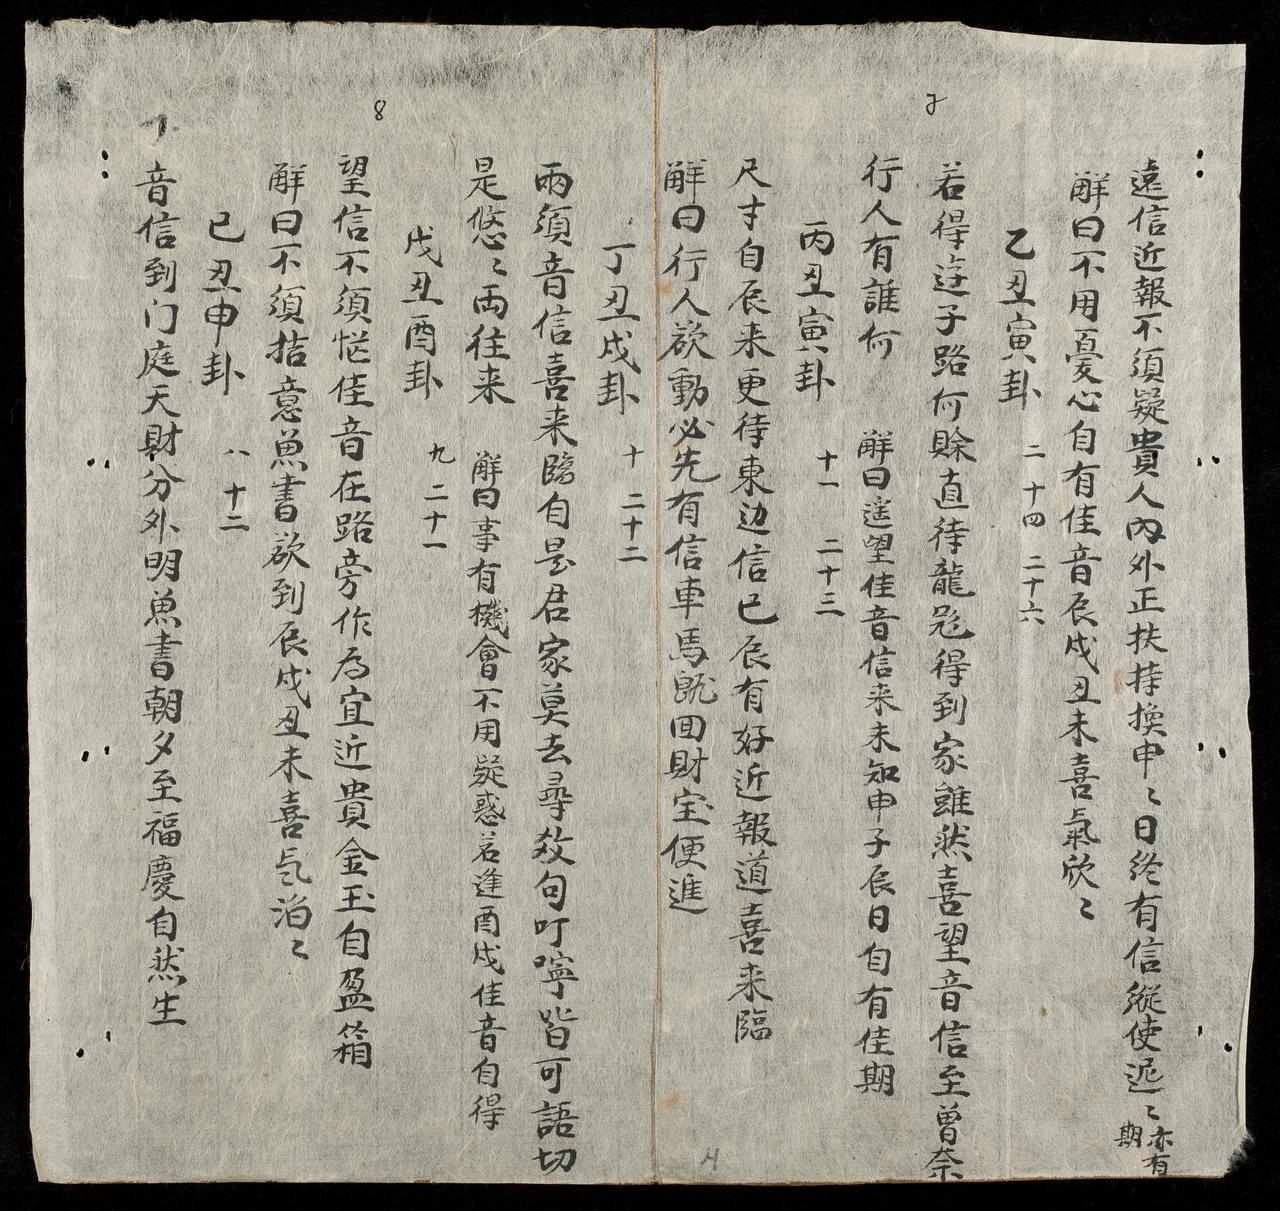 遠信近報不須疑貴人內外正扶持換申〻日終有信縱使遲〻亦有期
解曰不用憂心自有佳音辰戌丑未喜氣欣〻
乙丑寅卦 二 十四 二十六
若得遊子路何賒直待龍 得到家雖然喜望音信至曾奈
行人有誰何 解曰遙望佳音信来未知申子辰日自有佳期
丙丑寅卦 十一 二十三
尺寸自辰来更待東边信已辰有好近報道喜来臨
解曰行人欲動必先有信車馬既回財宝便進
丁丑戌卦 十 二十二
兩須音信喜来臨自是君家莫去尋数句叮嚀皆可語切
是悠〻両往来 解曰事有機會不用疑惑若逢酉戌佳音自得
戊丑酉卦 九 二十一
望信不須忙佳音在路旁作为宜近貴金玉自盈箱
解曰不須掂意魚書欲到辰戌丑未喜气洎〻
已丑申卦 八 十二
音信到门庭天財分外明魚書朝夕至福慶自然生
8